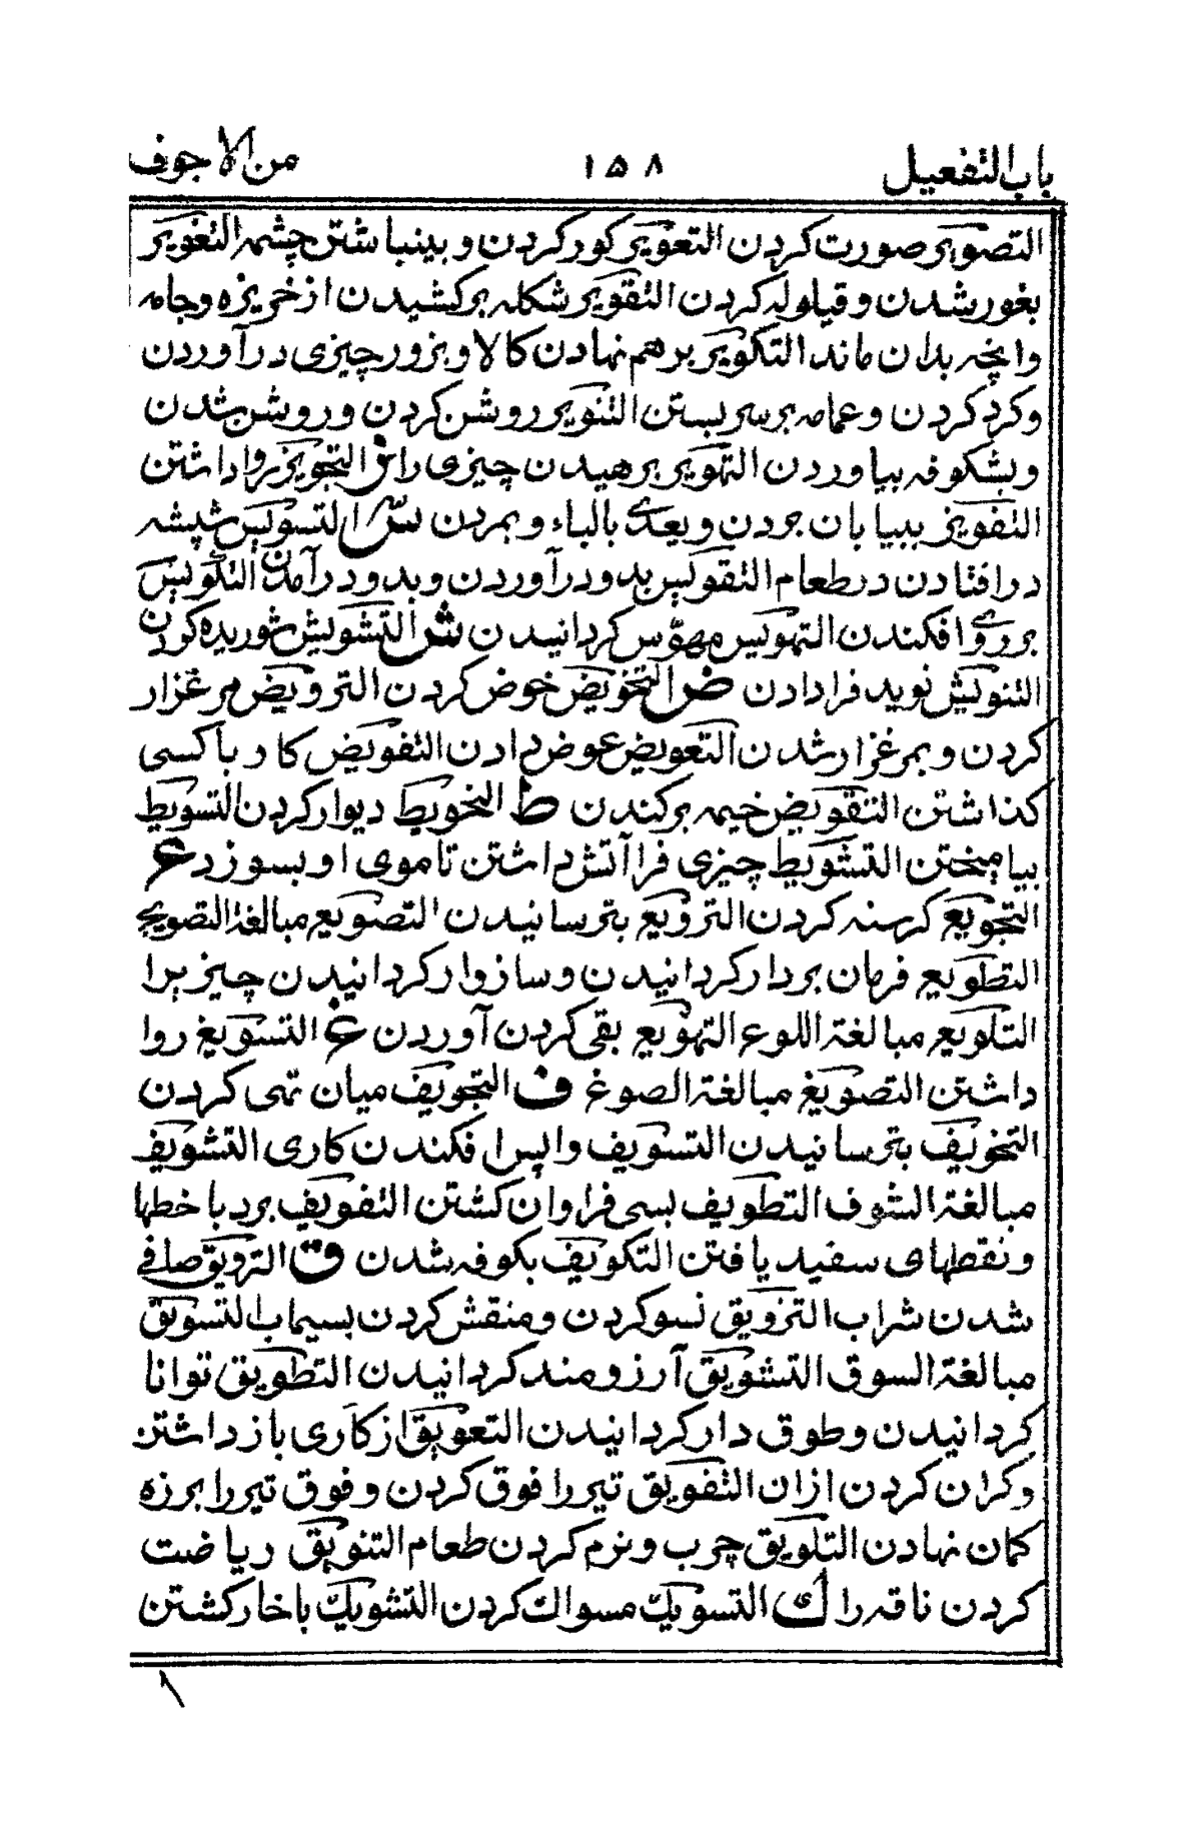 باب التفعیل ۱۵۸ من الاجوف
التصویر صورت کردن التعویر کور کردن و بینباشتن چشمه التغویر
بغور شدن و قیلوله کردن التقویر شکله برکشیدن از خربزه و جامه
وانچه بدان ماند التکویر برهم نهادن کالا و بزور چیزی درآوردن
وکرد کردن و عمامه برسر بستن التنویر روشن کردن و روشن شدن
و بشکوفه بیاوردن التهویر برهیدن چیزی را ز التجویز روا داشتن
التفویز ببیابان بردن ویعدی بالباء و بمردن س التسویس شپشه
درافتادن در طعام التقویس بدو درآوردن و بدو درآمدن التکویس
برروی افکندن التهویس مهوّس کردانیدن ش التشویش شوریده کردن
التنویش نوید فرا دادن ض التخویض خوض کردن الترویض مرغزار
کردن و بمرغزار شدن التعویض عوض دادن التفویض کار با کسی
کذاشتن التقویض خیمه برکندن ط التحویط دیوار کردن التسویط
بیامیختن التشویط چیزی فرا آتش داشتن تا موی او بسوزد ع
التجویع کرسنه کردن الترویع بترسانیدن التصویع مبالغة التصویح
التطویع فرمان بردار کردانیدن و سازوار کردانیدن چیزیرا
التلویع مبالغة اللوع التهویع بقی کردن آوردن غ التسویغ روا
داشتن التصویغ مبالغة الصوغ ف التجویف میان تهی کردن
التخویف بترسانیدن التسویف واپس افکندن کاری التشویف
مبالغة الشوف التطویف بسی فراوان کشتن التفویف برد با خطها
و نقطهای سفید یافتن التکویف بکوفه شدن ق الترویق صافی
شدن شراب التزویق نسو کردن و منقش کردن بسیماب التسویق
مبالغة السوق التشویق آرزومند کردانیدن التطویق توانا
کردانیدن و طوق دار کردانیدن التعویق از کاری باز داشتن
وکران کردن ازان التفویق تیر را فوق کردن و فوق تیر را برزه
کمان نهادن التلویق چرب و نرم کردن طعام التنویق ریاضت
کردن ناقه را ك التسویك مسواك کردن التشویك با خار کشتن